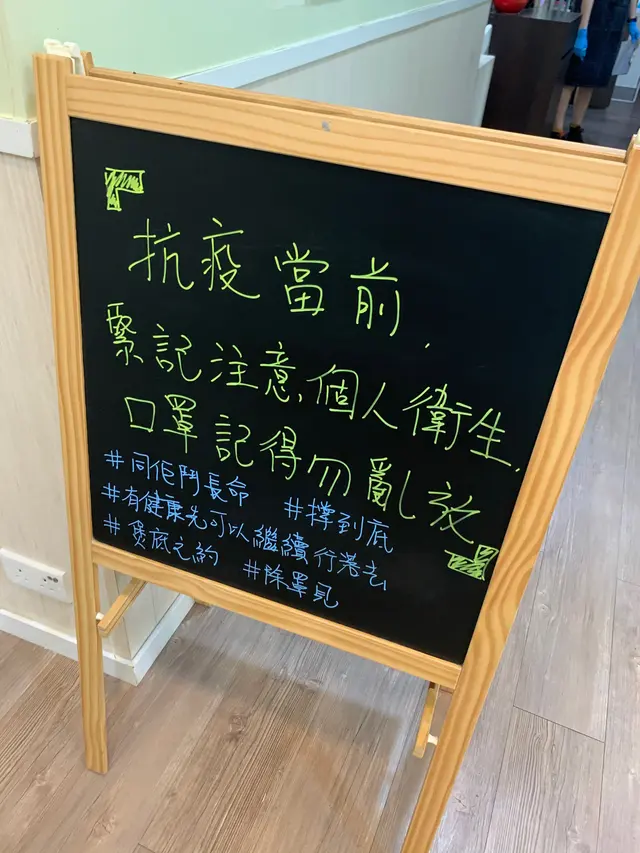 「抗疫當前,
緊記注意,個人衛生,
口罩記得勿亂放」
#同佢鬥長命 #撐到底
#有健康先可以繼續行落去
#煲底之約 #除罩見